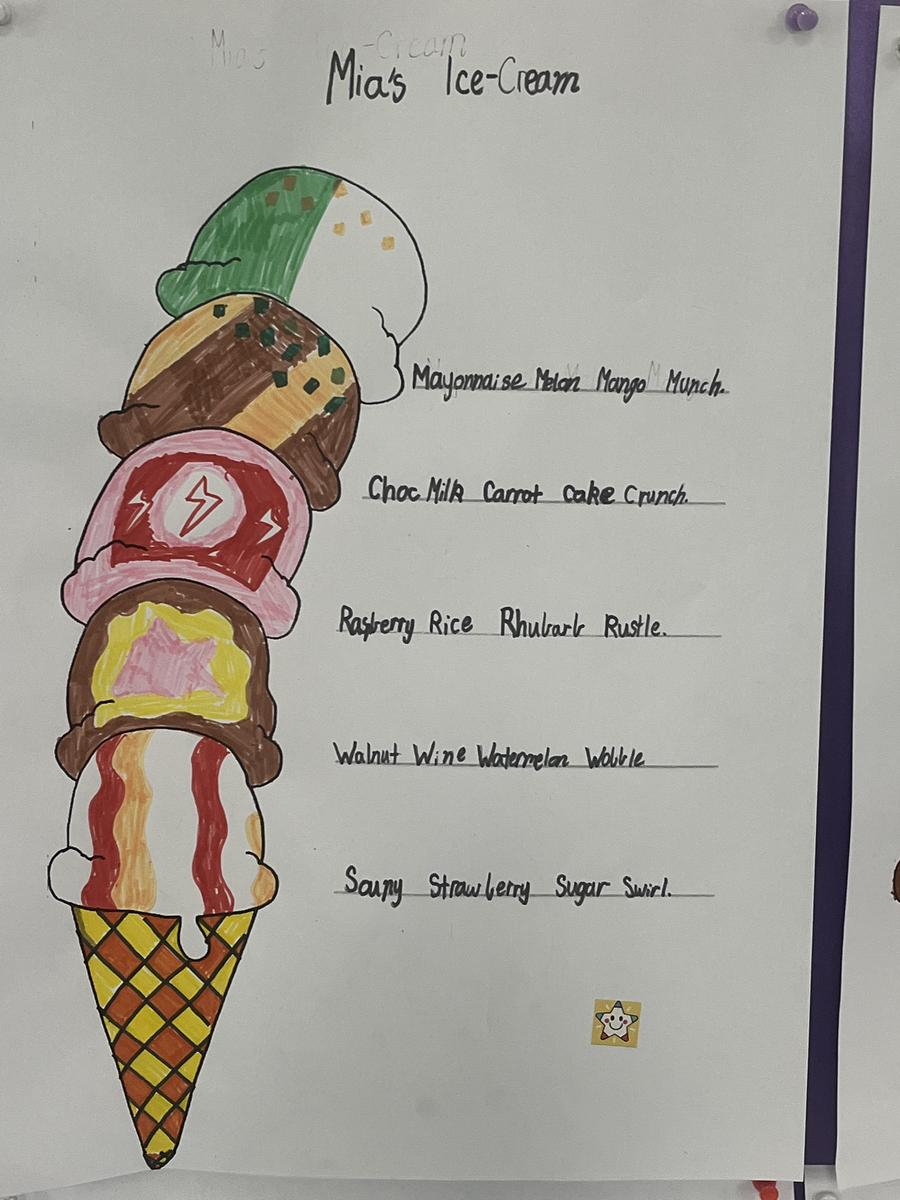 Mia's Ice-Cream
Mia's Ice-Cream
Mayonnaise Melon Mango Munch.
Choc Milk Carrot cake Crunch.
Raspberry Rice Rhubarb Rustle.
Walnut Wine Watermelon Wobble
Soupy Strawberry Sugar Swirl.